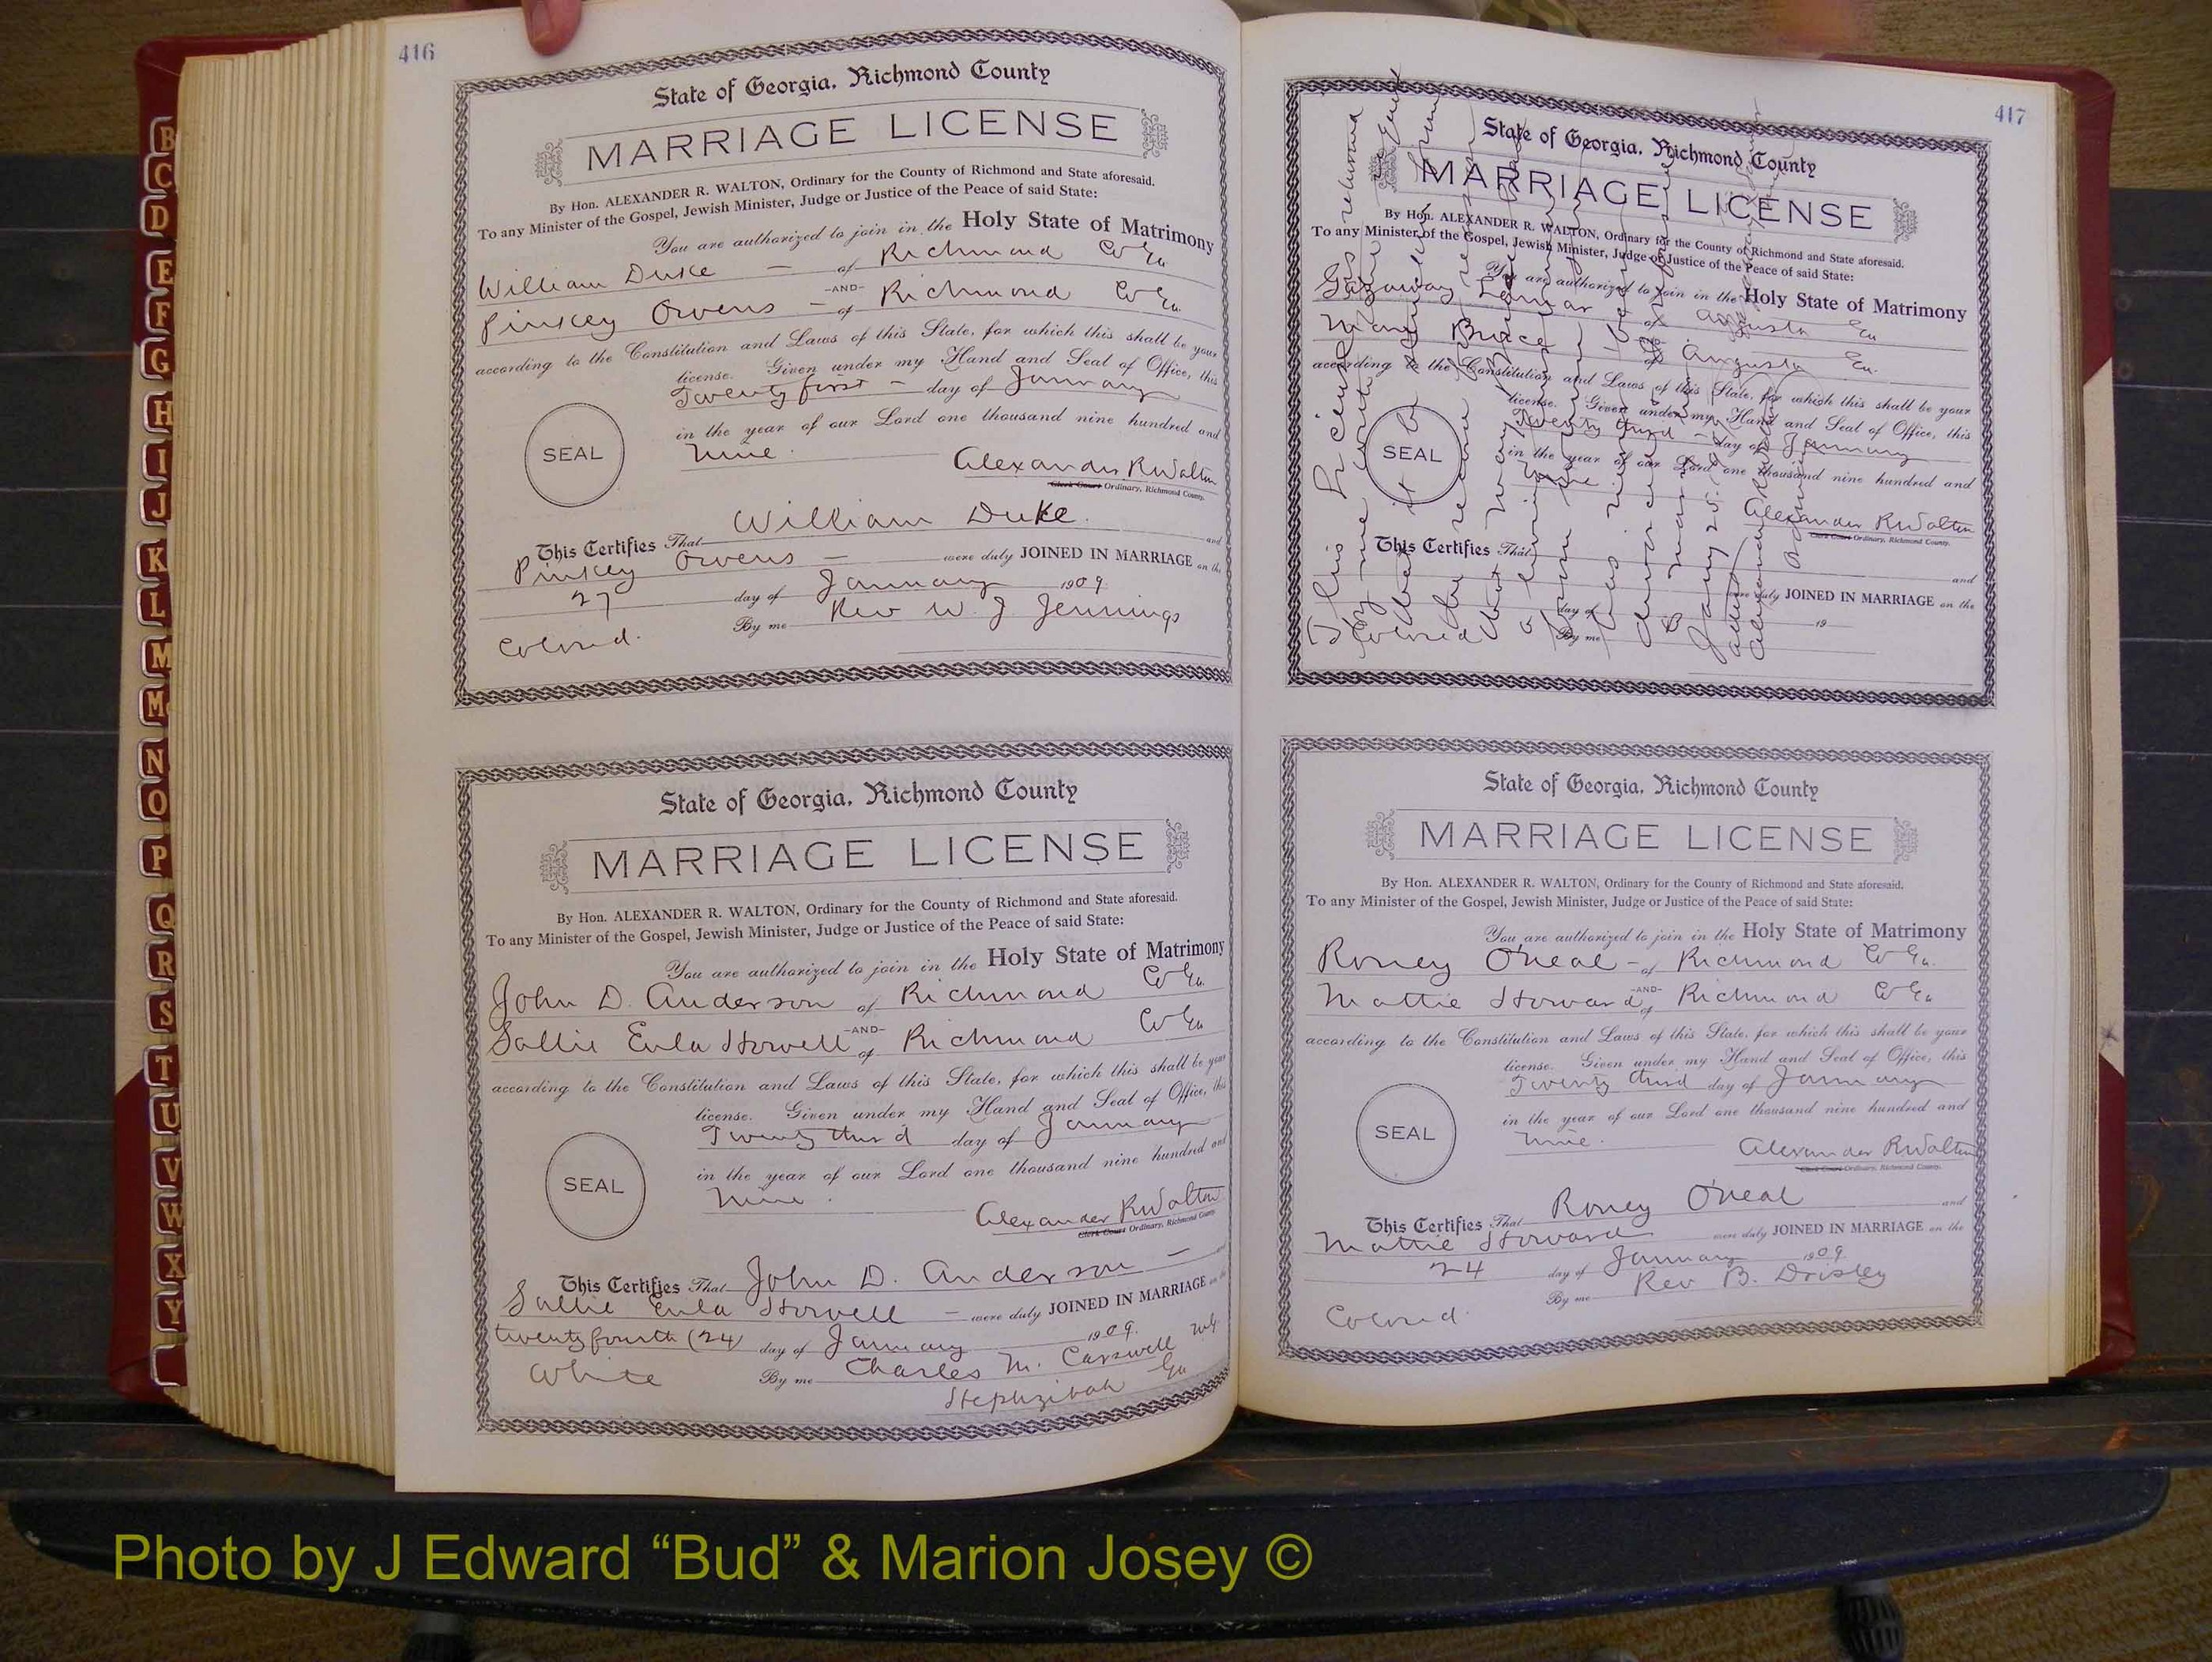 416
State of Georgia, Richmond County
MARRIAGE LICENSE
By Hon. ALEXANDER R. WALTON, Ordinary for the County of Richmond and State aforesaid.
To any Minister of the Gospel, Jewish Minister, Judge or Justice of the Peace of said State:
You are authorized to join in the Holy State of Matrimony
William Duke — of Richmond Co Ga
-AND-
Pinkey Owens — of Richmond Co Ga
according to the Constitution and Laws of this State, for which this shall be your
license. Given under my Hand and Seal of Office, this
Twenty first — day of January
in the year of our Lord one thousand nine hundred and
SEAL
Nine.
Alexander R Walton
Clerk Court Ordinary, Richmond County.
This Certifies That William Duke. and
Pinkey Owens — were duly JOINED IN MARRIAGE on the
27 day of January 1909
By me Rev W. J Jennings
Colored.
State of Georgia, Richmond County
MARRIAGE LICENSE
By Hon. ALEXANDER R. WALTON, Ordinary for the County of Richmond and State aforesaid.
To any Minister of the Gospel, Jewish Minister, Judge or Justice of the Peace of said State:
You are authorized to join in the Holy State of Matrimony
John D. Anderson of Richmond Co Ga.
-AND-
Sallie Eula Howell of Richmond Co Ga
according to the Constitution and Laws of this State, for which this shall be your
license. Given under my Hand and Seal of Office, this
Twenty third day of January
in the year of our Lord one thousand nine hundred and
SEAL
Nine.
Alexander R Walton
Clerk Court Ordinary, Richmond County
This Certifies That John D. Anderson — and
Sallie Eula Howell — were duly JOINED IN MARRIAGE on the
twenty fourth (24) day of January 1909.
White By me Charles M. Carswell
Hephzibah Ga
417
State of Georgia, Richmond County
MARRIAGE LICENSE
By Hon. ALEXANDER R. WALTON, Ordinary for the County of Richmond and State aforesaid.
To any Minister of the Gospel, Jewish Minister, Judge or Justice of the Peace of said State:
You are authorized to join in the Holy State of Matrimony
Gazaway Lamar of Augusta Ga
Mary Bruce of Augusta Ga.
according to the Constitution and Laws of this State, for which this shall be your
license. Given under my Hand and Seal of Office, this
Twenty third — day of January
in the year of our Lord one thousand nine hundred and
SEAL
Nine
Alexander R Walton
Clerk Court Ordinary, Richmond County.
This Certifies That
and
were duly JOINED IN MARRIAGE on the
day of 19
By me
Colored
This license was returned
State of Georgia, Richmond County
MARRIAGE LICENSE
By Hon. ALEXANDER R. WALTON, Ordinary for the County of Richmond and State aforesaid.
To any Minister of the Gospel, Jewish Minister, Judge or Justice of the Peace of said State:
You are authorized to join in the Holy State of Matrimony
Roney O'Neal — of Richmond Co Ga.
-AND-
Mattie Howard of Richmond Co Ga
according to the Constitution and Laws of this State, for which this shall be your
license. Given under my Hand and Seal of Office, this
Twenty third day of January
in the year of our Lord one thousand nine hundred and
SEAL
Nine.
Alexander R Walton
Clerk Court Ordinary, Richmond County.
This Certifies That Roney O'Neal and
Mattie Howard were duly JOINED IN MARRIAGE on the
24 day of January 1909.
By me Rev B. Drisley
Colored.
B
C
D
E
F
G
H
I
J
K
L
M
Mc
N
O
P
Q
R
S
T
U
V
W
X
Y
Photo by J Edward “Bud” & Marion Josey ©